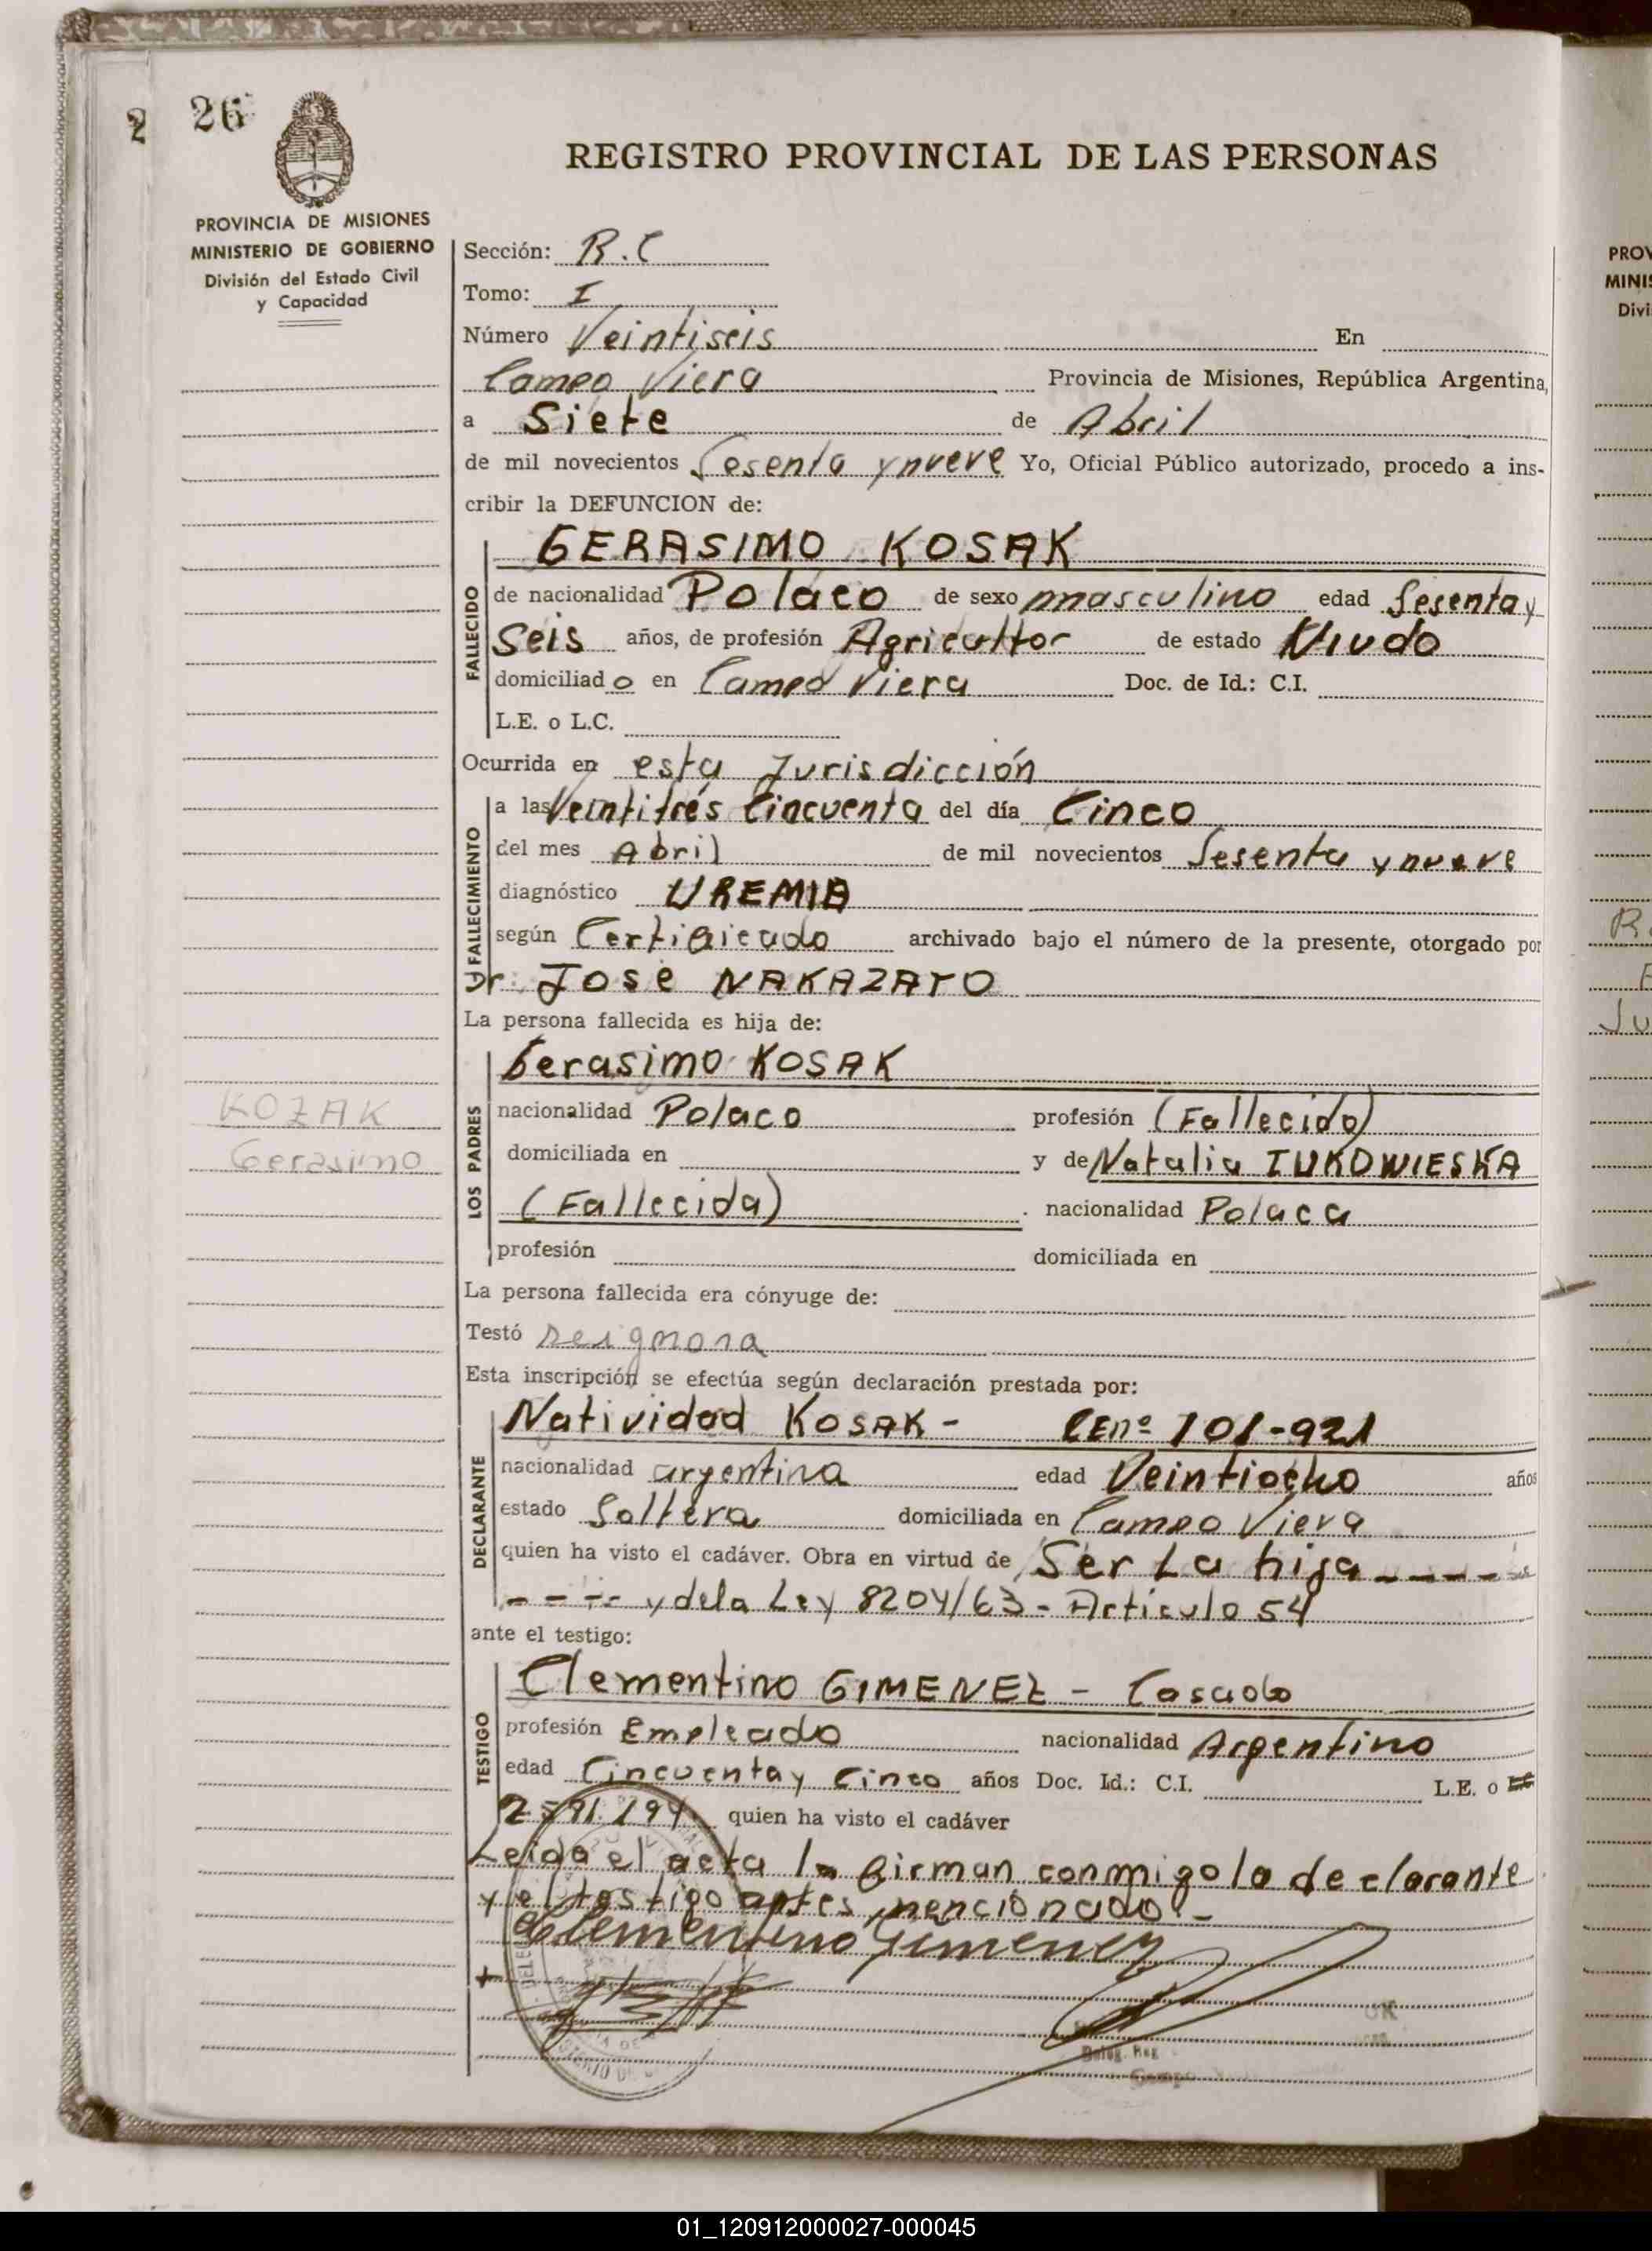 2
26
REGISTRO PROVINCIAL DE LAS PERSONAS
PROVINCIA DE MISIONES
MINISTERIO DE GOBIERNO
División del Estado Civil
y Capacidad
Sección: R.C
Tomo: I
Número Veintiseis En
Campo Viera Provincia de Misiones, República Argentina,
a Siete de Abril
de mil novecientos Sesenta y nueve Yo, Oficial Público autorizado, procedo a ins-
cribir la DEFUNCION de:
GERASIMO KOSAK
FALLECIDO
de nacionalidad Polaco de sexo masculino edad Sesenta y
Seis años, de profesión Agricultor de estado Viudo
domiciliado en Campo Viera Doc. de Id.: C.I.
L.E. o L.C.
Ocurrida en esta Jurisdicción
FALLECIMIENTO
a las Veintitrés Cincuenta del día Cinco
del mes Abril de mil novecientos Sesenta y nueve
diagnóstico UREMIA
según Certificado archivado bajo el número de la presente, otorgado por
Dr. Jose NAKAZATO
La persona fallecida es hija de:
Gerasimo KOSAK
LOS PADRES
nacionalidad Polaco profesión (Fallecido)
domiciliada en y de Natalia IUKOWIESKA
(Fallecida) . nacionalidad Polaca
profesión domiciliada en
KOZAK
Gerasimo
La persona fallecida era cónyuge de:
Testó se ignora
Esta inscripción se efectúa según declaración prestada por:
Natividad KOSAK - CEnº 101-921
DECLARANTE
nacionalidad argentina edad Veintiocho años
estado Soltera domiciliada en Campo Viera
quien ha visto el cadáver. Obra en virtud de Ser La hija ----
---- y dela Ley 8204/63 - Artículo 54
ante el testigo:
Clementino GIMENEZ - Casado
TESTIGO
profesión Empleado nacionalidad Argentino
edad Cincuenta y Cinco años Doc. Id.: C.I. L.E. o LC
quien ha visto el cadáver
Leida el acta la firman conmigo la declarante
y el testigo antes mencionado.-
Clementino Gimenez
Deleg. Reg
Campo
PROV
MINIS
Divi
01_120912000027-000045